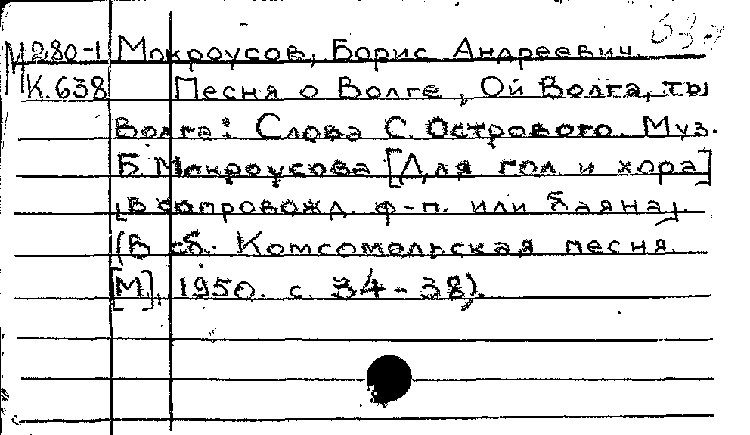 М280-1 Мокроусов, Борис Андреевич.
К.638 Песня о Волге, Ой Волга, ты
Волга! Слова С. Острового. Муз.
Б. Мокроусова [Для гол. и хора]
[в сопровожд. ф-п. или баяна].
(В сб.: Комсомольская песня.
[М], 1950. с. 34-38).